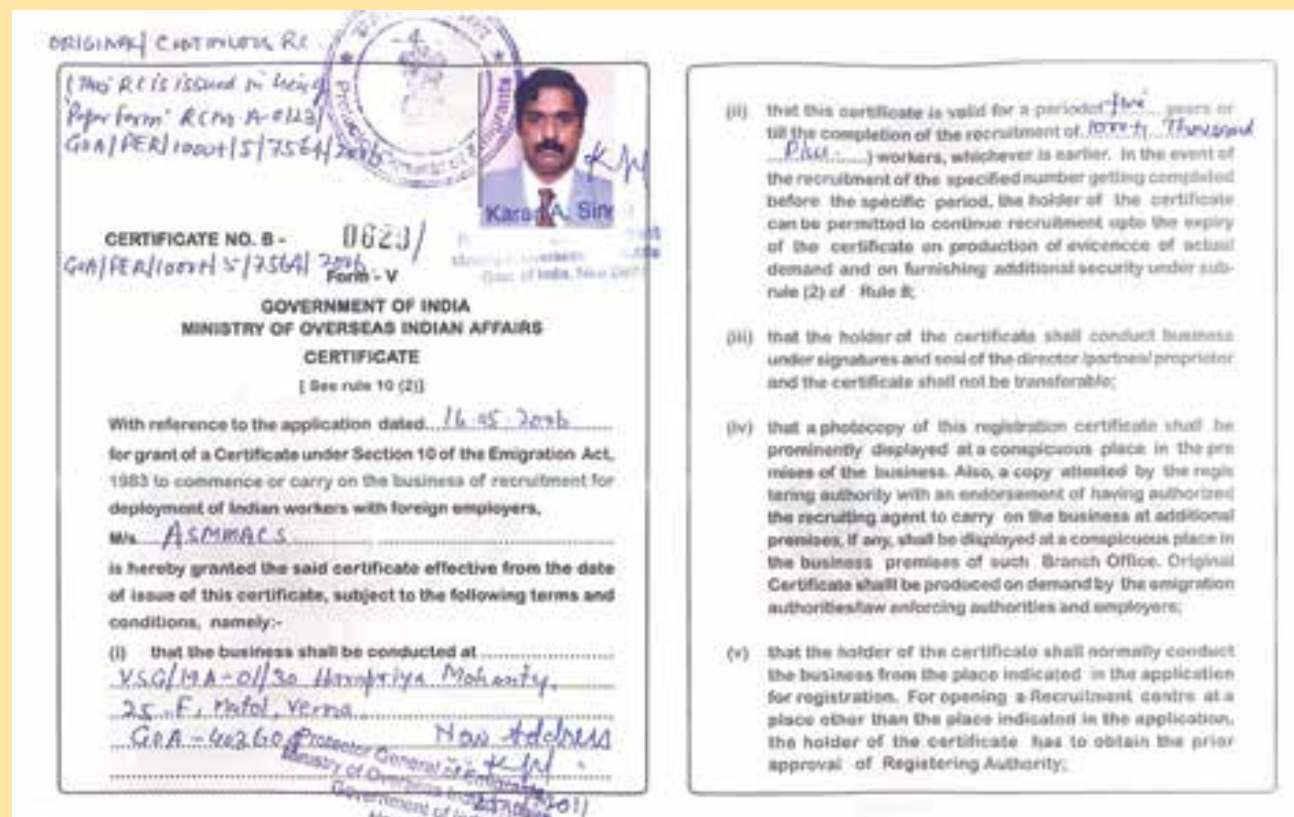 ORIGINAL/ CONTINUOUS RC
(This RC is issued in being
'Paper form' RC No A-0123/
GOA/PER/1000+/5/7564/2006
Karan A. Singh
CERTIFICATE NO. B - 0623/
GOA/PER/1000+/5/7564/2006
Form - V
GOVERNMENT OF INDIA
MINISTRY OF OVERSEAS INDIAN AFFAIRS
CERTIFICATE
[ See rule 10 (2)]
With reference to the application dated...16.05.2006
for grant of a Certificate under Section 10 of the Emigration Act,
1983 to commence or carry on the business of recruitment for
deployment of Indian workers with foreign employers,
M/s ASMMACS
is hereby granted the said certificate effective from the date
of issue of this certificate, subject to the following terms and
conditions, namely:-
(i) that the business shall be conducted at
VSG/MA-01/30 Mohanty,
25-F, Verna
GOA - New Address
Protector General of Emigrants
Ministry of Overseas
Government of
(ii) that this certificate is valid for a period of five years or
till the completion of the recruitment of 1000+ Thousand
Plus ) workers, whichever is earlier. In the event of
the recruitment of the specified number getting completed
before the specific period, the holder of the certificate
can be permitted to continue recruitment upto the expiry
of the certificate on production of evicencce of actual
demand and on furnishing additional security under sub-
rule (2) of Rule 8;
(iii) that the holder of the certificate shall conduct business
under signatures and seal of the director /partnes/ proprietor
and the certificate shall not be transferable;
(iv) that a photocopy of this registration certificate shall be
prominently displayed at a conspicuous place in the pre
mises of the business. Also, a copy attested by the regis
tering authority with an endorsement of having authorized
the recruiting agent to carry on the business at additional
premises, if any, shall be displayed at a conspicuous place in
the business premises of such Branch Office. Original
Certificate shalll be produced on demand by the emigration
authorities/law enforcing authorities and employers;
(v) that the holder of the certificate shall normally conduct
the business from the place indicated in the application
for registration. For opening a Recruitment centre at a
place other than the place indicated in the application,
the holder of the certificate has to obtain the prior
approval of Registering Authority;